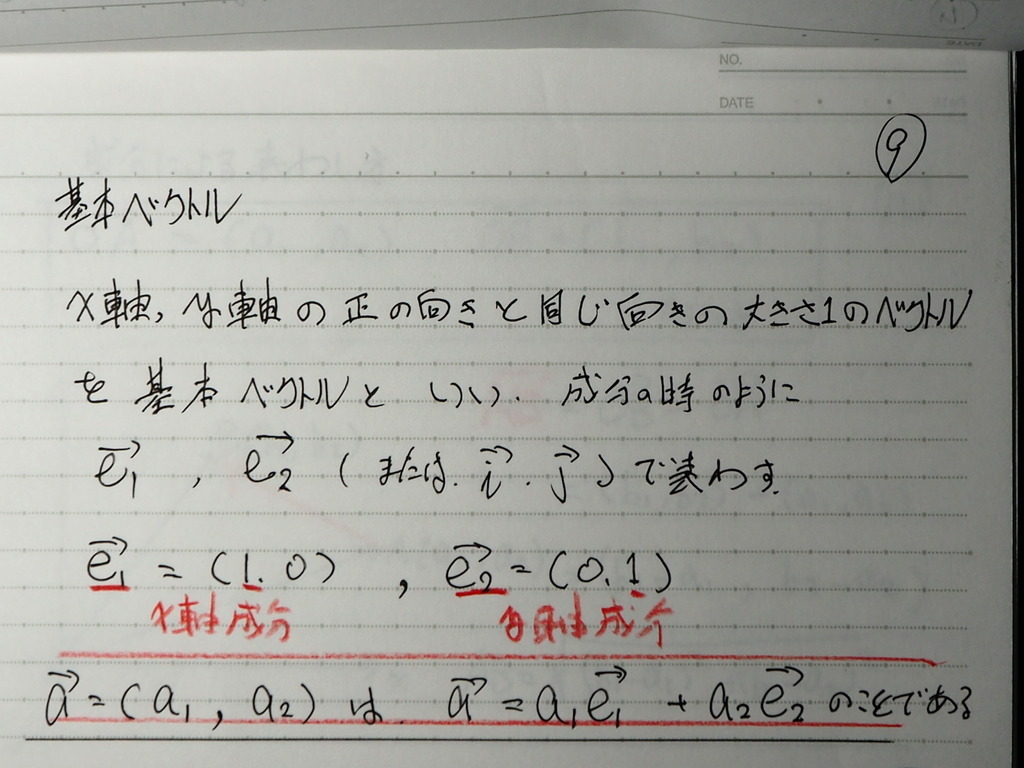 NO.
DATE
⑨
基本ベクトル
x軸, y軸の正の向きと同じ向きの大きさ1のベクトル
を基本ベクトルといい. 成分の時のように
e₁→, e₂→ (または. i→. j→) で表わす.
e₁→ = (1. 0) , e₂→ = (0. 1)
x軸成分 y軸成分
a→ = (a₁, a₂) は. a→ = a₁e₁→ + a₂e₂→ のことである